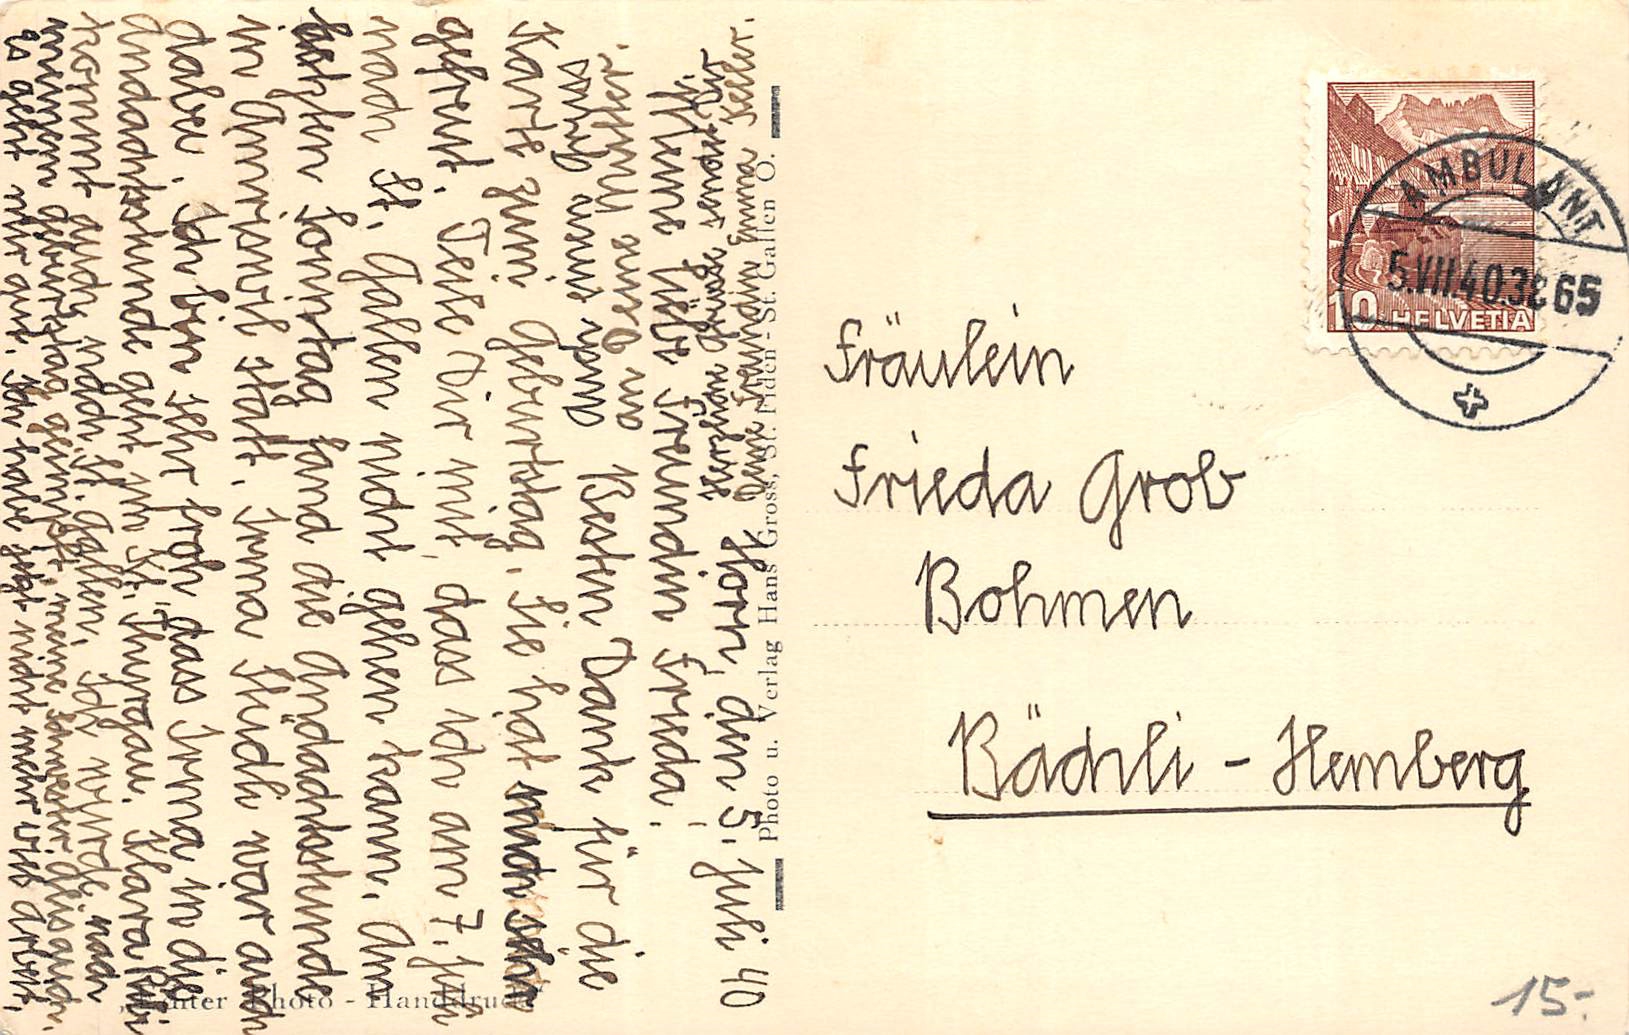 Fräulein
Frieda Grob
Bohmen
Bächli - Hemberg
AMBULANT
5.VII.40.3265
10 HELVETIA
Horn, den 5. Juli 40
liebe Freundin Frieda.
Besten Dank für die
Karte zum Geburtstag. Sie hat mich sehr
gefreut. Teile Dir mit, dass ich am 7. Juli
nach St. Gallen nicht gehen kann. Am
letzten Sonntag fand die Andachtstunde
in Amriswil statt. Irma Studli war auch
dabei. Ich bin sehr froh, dass Irma in die
Andachtstunde geht im Kt. Thurgau. Klara
kommt auch nach St. Gallen. Ich wurde, nach
meinem Geburtstag geimpft, meine Schwester auch.
es geht mir gut. Ich habe jetzt nicht mehr viel Arbeit,
Gruss
an Deine Mutter.
Herzliche Grüsse sendet Dir
Deine Freundin Emma Keller.
Photo u. Verlag Hans Gross, St. Fiden - St. Gallen O.
„Echter Photo - Handdruck"
15.-